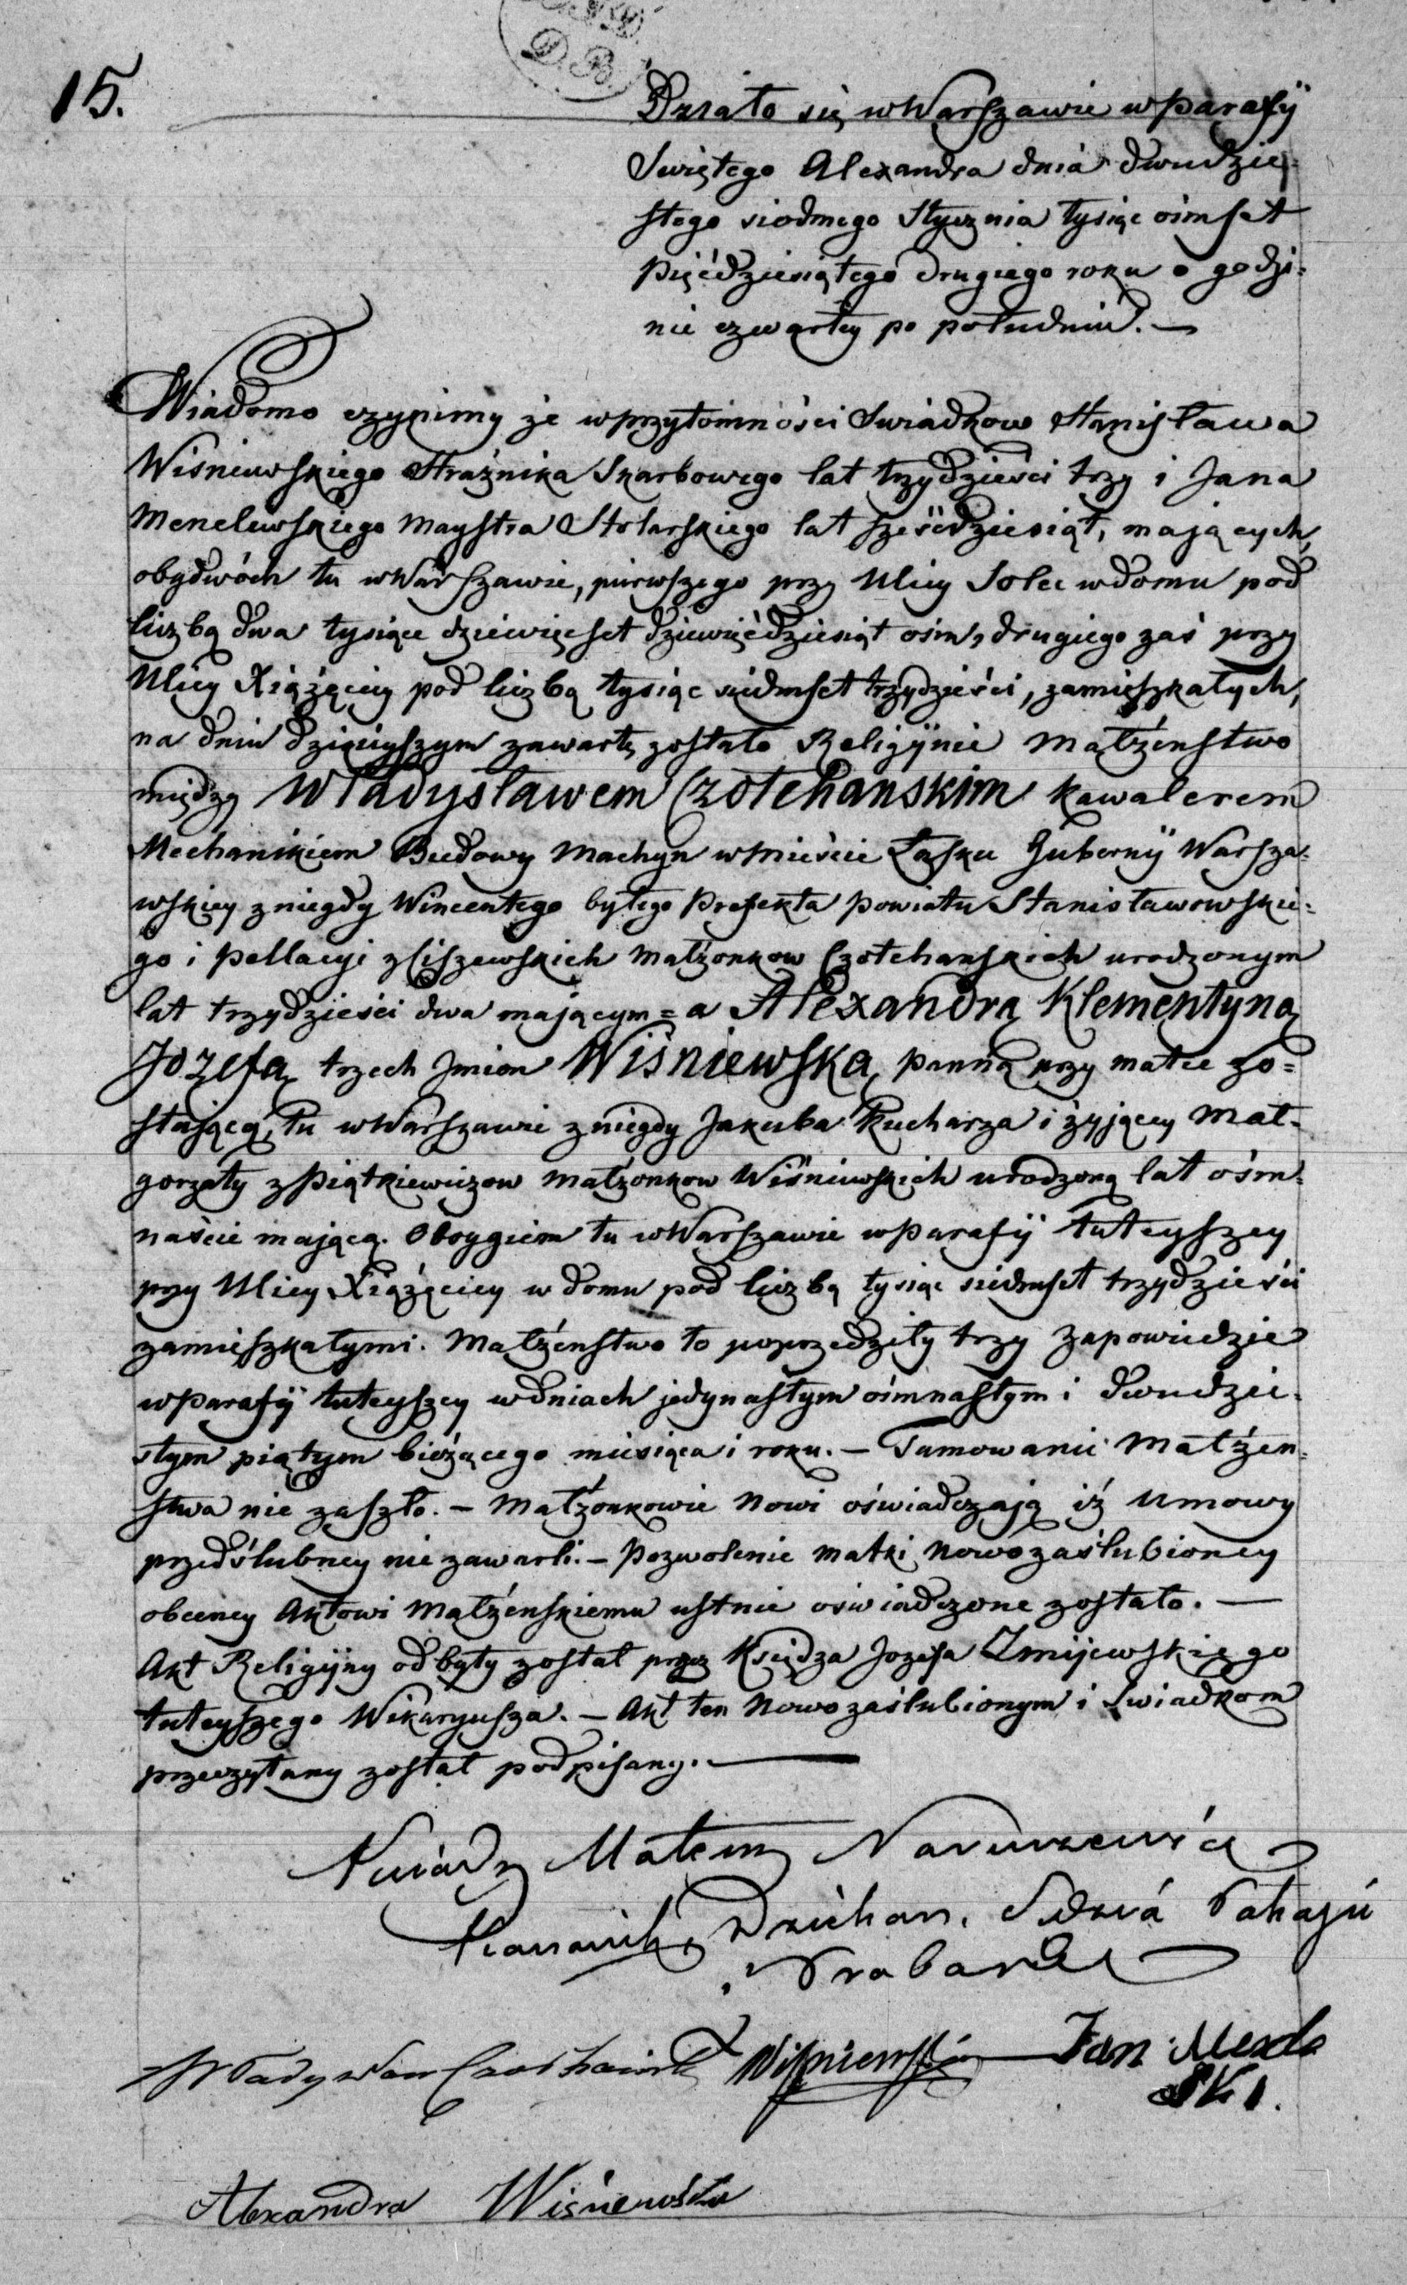 15.
Działo się w Warszawie w Parafij
Swiętego Alexandra dnia dwudzie=
stego siodmego Stycznia tysiąc ośmset
Pięćdziesiątego drugiego roku o godzi=
nie czwartey po południu. —
Wiadomo czynimy że w przytomności Swiadkow Stanisława
Wiśniewskiego Strażnika Skarbowego lat trzydzieści trzy i Jana
Menclewskiego Maystra Stolarskiego lat sześćdziesiąt, maiących,
obydwóch tu w Warszawie, pierwszego przy Ulicy Solec w domu pod
liczbą dwa tysiące dziewięćset dziewięćdziesiąt ośm, drugiego zaś przy
Ulicy Xiążęcey pod liczbą tysiąc siedmset trzydzieści, zamieszkałych,
na dniu dzisieyszym zawarte zostało Religijnie Małżeństwo
między Władysławem Czołchańskim Kawalerem
Mechanikiem Budowy Machyn w Mieście Łasku Gubernij Warsza=
wskiey z niegdy Wincentego byłego Prefekta Powiatu Stanisławowskie=
go i Pellacyi z Ciszewskich Małżonkow Czołchańskich urodzonym
lat trzydzieści dwa mającym = a Alexandrą Klementyną
Jozefą trzech Jmion Wiśniewską, Panną przy matce zo=
stającą, tu w Warszawie z niegdy Jakuba Kucharza i żyjącey Mał=
gorzaty z Piątkiewiczow Małżonkow Wiśniewskich urodzoną lat ośm=
naście mającą. Oboygiem tu w Warszawie w Parafij tuteyszey
przy Ulicy Xiążęcey w domu pod liczbą tysiąc siedmset trzydzieści
zamieszkałymi. Małżeństwo to poprzedziły trzy Zapowiedzie
w Parafij tuteyszey w dniach jedynastym ośmnastym i dwudzie=
stym piątym bieżącego miesiąca i roku. — Tamowanie Małżeń=
stwa nie zaszło. — Małżonkowie Nowi oświadczają iż Umowy
przedślubney nie zawarli. — Pozwolenie Matki Nowozaślubioney
obecney Aktowi Małżeńskiemu ustnie oświadczone zostało. —
Akt Religijny odbyty został przez Księdza Jozefa Zmijewskiego
tuteyszego Wikaryusza. — Akt ten Nowozaślubionym i Swiadkom
przeczytany został podpisany. —
Xiądz Mateusz
Kanonik, Dziekan, Sędzia Pokoju
Proboszcz
Władysław Czołchański Wiśniewski Jan Mencle
SKI.
Alexandra Wiśniewska